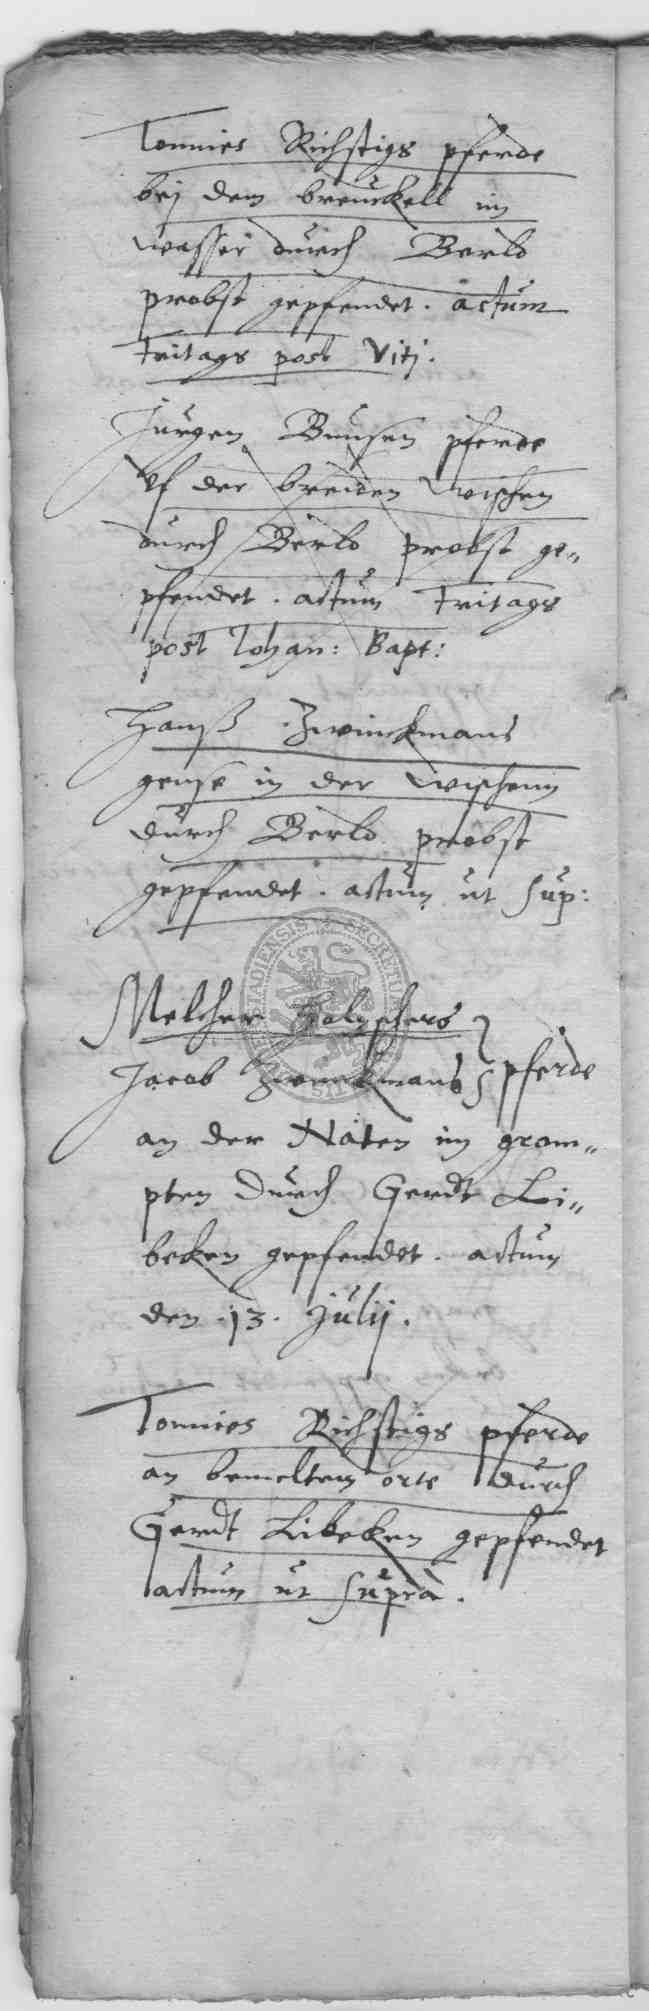 Tonnies Richstigs pferde
bej dem breuckell im
wasser durch Berld
probst gepfendet. actum
fritags post Viti.
Jurgen Bunsen pferde
uf der breiden wischen
durch Berld probst ge„
pfendet. actum fritags
post Johan: Bapt:
Hanß Zwinckmans
gense in der wischenn
durch Berld probst
gepfendet. actum ut sup:
Melcher
Jacob Zwenckmans pferde
an der Naten im grom„
pten durch Gerdt Li„
beken gepfendet. actum
den .13. Julij.
Tonnies Richstigs pferde
an bemeltem orte durch
Gerdt Libeken gepfendet
actum ut supra.